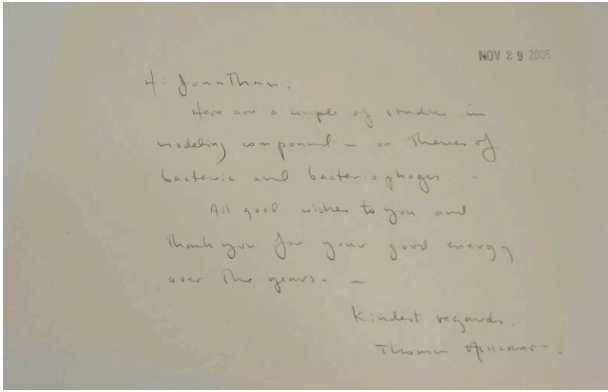 NOV 29 2005
Hi Jonathan.
Here are a couple of studies in
modeling compound – on Themes of
bacteria and bacteriophages.
All good wishes to you and
Thank you for your good energy
over The years. –
Kindest regards.
Thomas